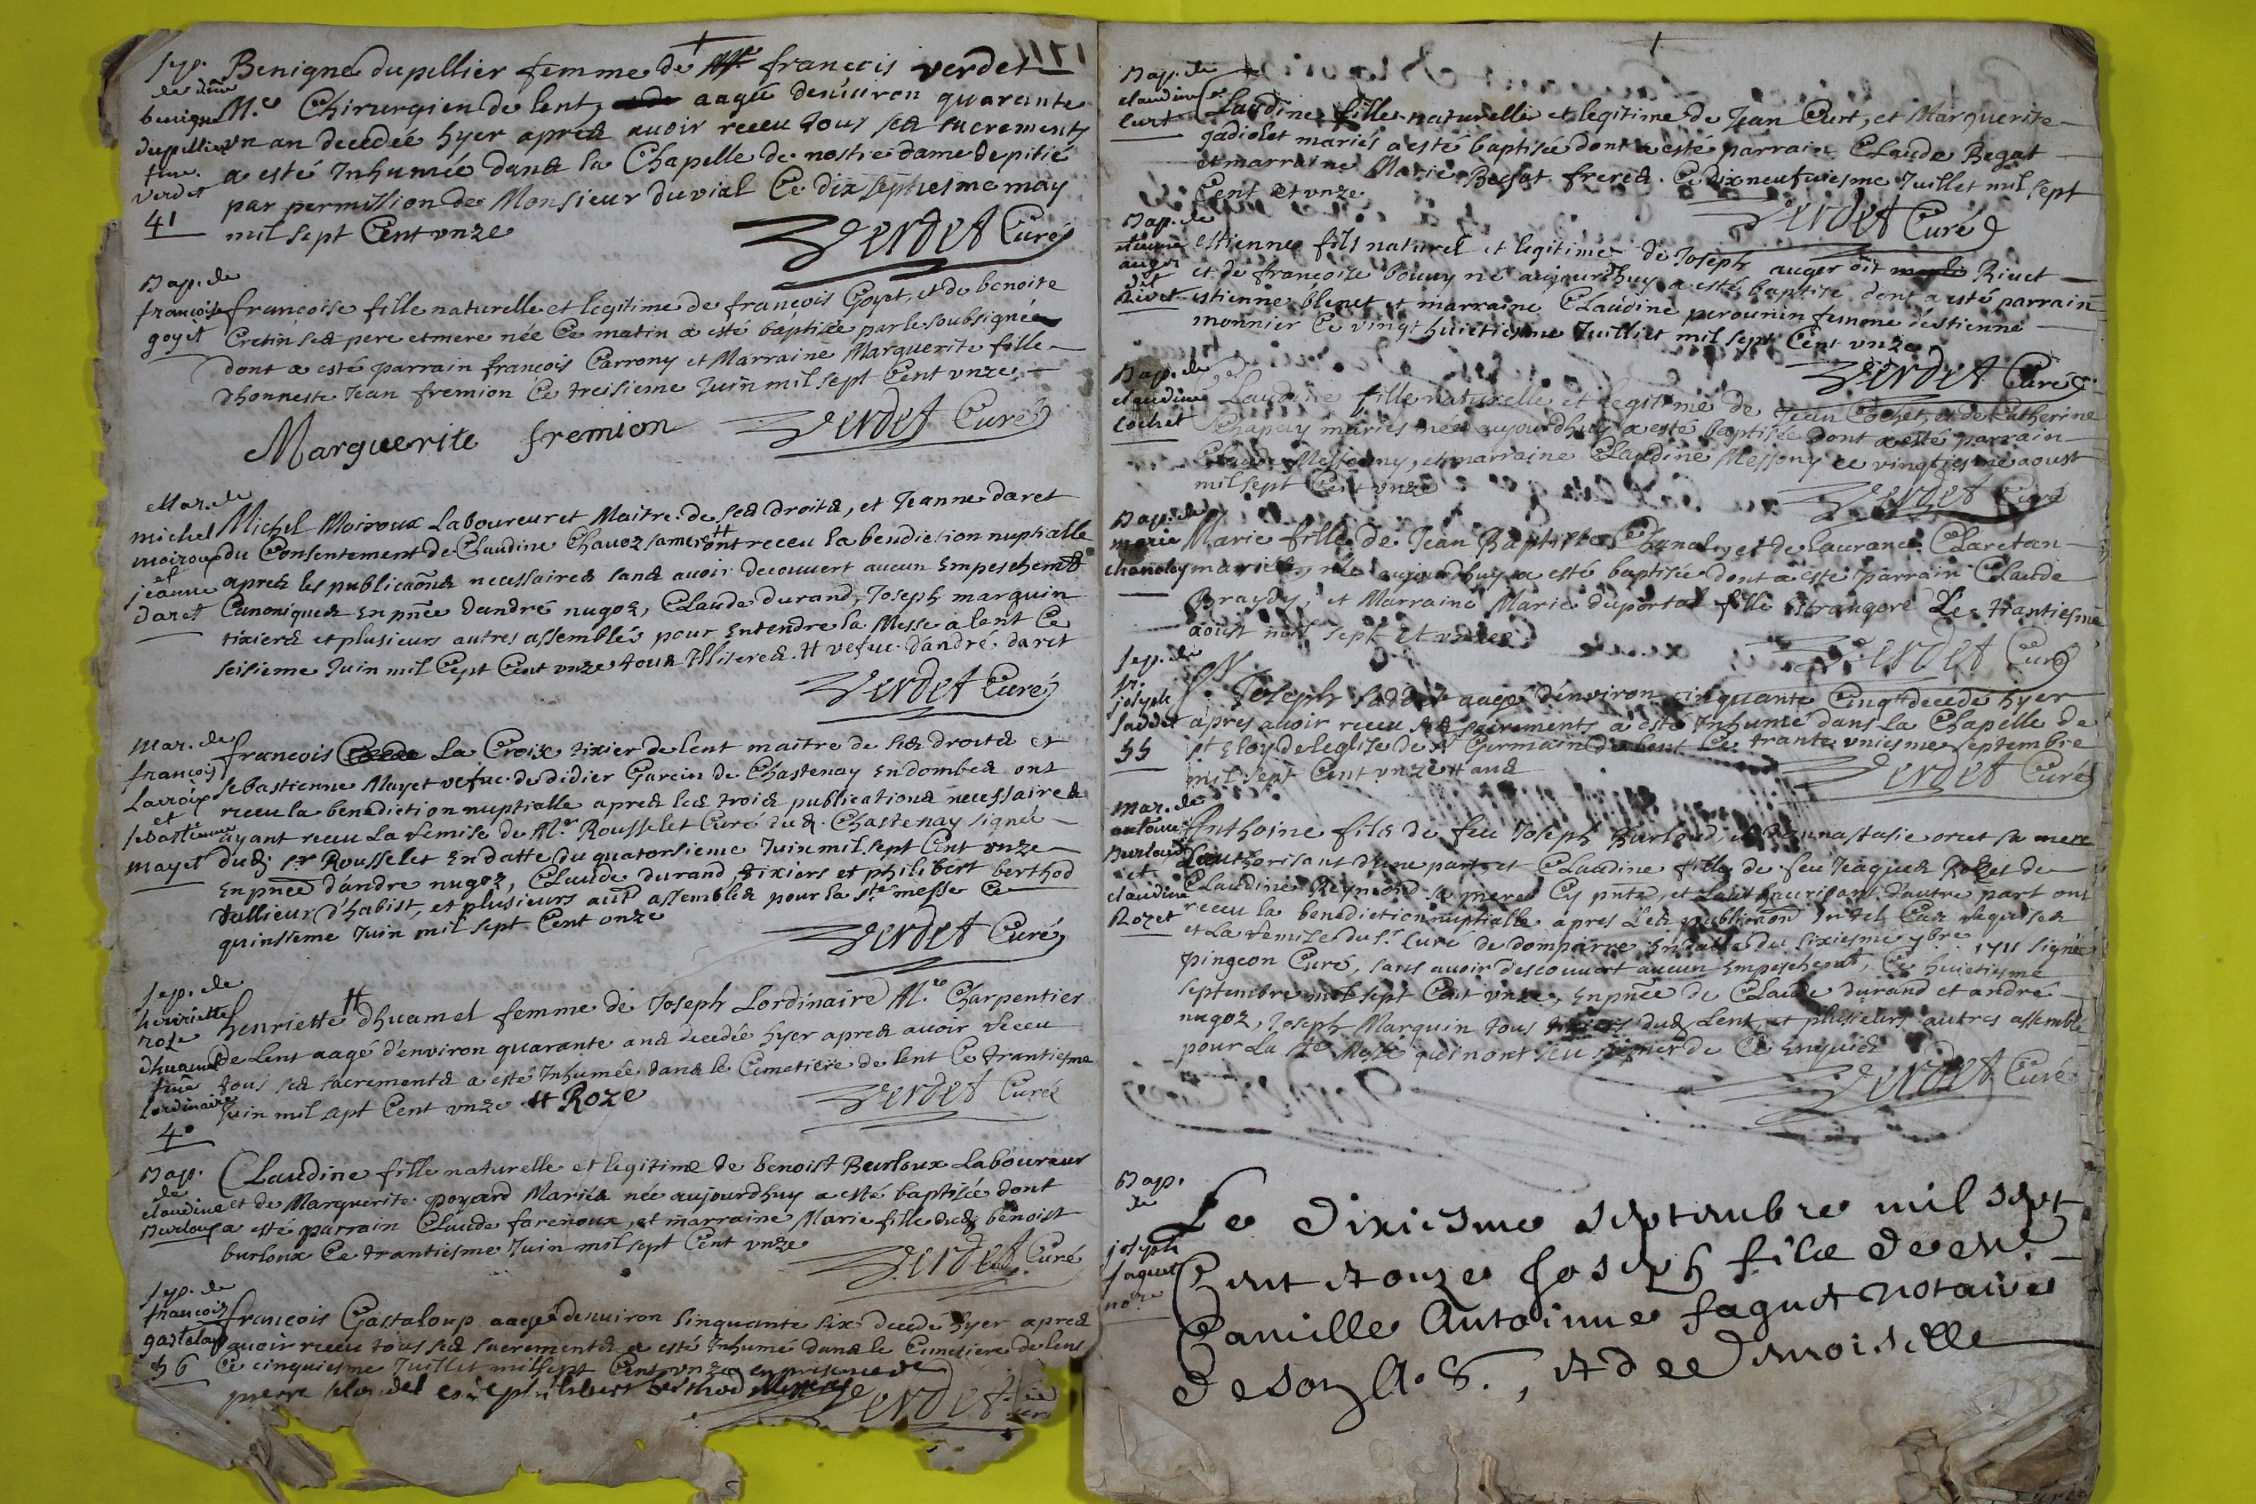 1711
Sep.
de dame
benigne
dupellier
fme
verdet
41
Benigne dupellier femme de Mr francois verdet
Me Chirurgien de lent, aagée denuiron quarante
vn an decedée hyer apres auoir receu tous ses sacrements
a esté Inhumée dans la Chapelle de nostre dame de pitié
par permission de Monsieur duvial Ce dix septiesme may
mil sept Cent vnze
Verdet Curé
Bap. de
francoise
goyet
francoise fille naturelle et legitime de francois Goyet, et de benoite
Cretin ses pere et mere née Ce matin a esté baptisée par le soubsigné
dont a esté parrain francois Carrony et Marraine Marguerite fille
dhonneste Jean fremion Ce treisieme Juin mil sept Cent vnze
Marguerite fremion
Verdet Curé
Mar. de
michel
moiroux
et
jeanne
daret
Michel Moiroux Laboureur et Maitre de ses droits, et Jeanne daret
du Consentement de Claudine Chavoz sa mere # ont receu la benediction nuptialle
apres les publicaons necessaires sans auoir decouvert aucun Empeschemt
Canoniques En pnce dandré nugoz, Claude durand, Joseph marquin
tixiers et plusieurs autres assemblés pour Entendre la Messe a lent Ce
seisieme Juin mil sept Cent vnze tous Illiterés. # vefue dandré daret
Verdet Curé
Mar. de
francois
Lacroix
et
sebastienne
mayet
francois La Croix tixier de lent maitre de ses droits et
sebastienne Mayet vefue de didier Garcin de Chastenay En dombes ont
receu la benediction nuptialle apres les trois publications necessaires
ayant receu La remise de Mr. Rousselet Curé dud. Chastenay signée
dud. sr Rousselet En datte du quatorsieme Juin mil sept Cent onze
En pnce d'andre nugoz, Claude durand, tixiers et philibert berthod
tallieur d'habist, et plusieurs aut assemblés pour la ste messe Ce
quinsieme Juin mil sept Cent onze
Verdet Curé
Sep. de
henriette
roze
dhuamel
fme
Lordinaire
40
henriette # dhuamel femme de Joseph Lordinaire Me Charpentier
de Lent aagé d'environ quarante ans decedée hyer apres auoir receu
tous ses sacrements a esté Inhumée dans le Cimetiere de lent Ce trantiesme
Juin mil sept Cent vnze # Roze
Verdet Curé
Bap.
de
claudine
Burloux
Claudine fille naturelle et legitime de benoist Burloux Laboureur
et de Marguerite poyard Mariés née aujourdhuy a esté baptisée dont
a esté parrain Claude farenoux, et marraine Marie fille dud. benoist
burloux Ce trantiesme Juin mil sept Cent vnze
Verdet Curé
Sep. de
francois
gastaloup
56
francois Gastaloup aagé denuiron sinquante six decedé hyer apres
auoir receu tous ses sacrements a esté Inhumé dans le Cimetiere de lent
Ce cinquiesme Juillet mil sept Cent vnze en presence de
pierre et philibert berthod
Verdet
Bap. de
claudine
Curt
Claudine fille naturelle et legitime de Jean Curt, et Marguerite
gadiolet mariés a esté baptisée dont a esté parrain Claude Begat
et marraine Marie Begat freres. Ce dix neufuiesme Juillet mil sept
Cent et vnze
Verdet Curé
Bap. de
etienne
auger
dit
Rivet
estienne fils naturel et legitime de Joseph auger dit Riuet
et de francoise bouuy né aujourdhuy a esté baptisé dont a esté parrain
estienne blenet et marraine Claudine perounin femme d'estienne
monnier Ce vingt huictiesme Juilliet mil sept Cent vnze
Verdet Curé
Bap. de
claudine
Cochet
Claudine fille naturelle et legitime de Jean Cochet, et de Catherine
Chapuy mariés née aujourdhuy a esté baptisée dont a esté parrain
Claude Messonny, et marraine Claudine Messony ce vingtiesme aoust
mil sept Cent vnze
Verdet Curé
Bap. de
marie
chanaley
Marie fille de Jean Baptiste Chanaley et de laurance Claretan
mariés née aujourdhuy a esté baptisée dont a esté parrain Claude
Braydy, et Marraine Marie duportal fille estrangere Le trantiesme
aoust mil sept et vnze
Verdet Curé
Sep. de
Sr.
joseph
saddet
55
Sr. Joseph saddet aagé d'environ cinquante Cinq # decedé hyer
apres auoir receu ses sacrements a esté Inhumé dans la Chapelle de
st Eloy de leglise de st Germain de lent Ce trante vniesme septembre
mil sept Cent vnze # ans
Verdet Curé
Mar. de
antoine
Burloud
et
claudine
Rozet
Anthoine fils de feu Joseph Burloud, et dannastasie orcet sa mere
Lauthorisant dune part, et Claudine fille de feu Jeaques Rozet de
Claudine Reymond sa mere Cy pnte, et Lauthaurisant d'autre part ont
receu la benediction nuptialle apres Les publicaon En tel Cas requises
et La remise du sr. Curé de domparre En datte du sixiesme 7bre 1711 signée
pingeon Curé, sans avoir descouvert aucun Empeschemt, Ce huictiesme
septembre mil sept Cent vnze, En pnce de Claude durand et andré
nugoz, Joseph Marquin tous tixiers dud. Lent, et plusieurs autres assemblé
pour La ste Messe qui nont sceu signer de Ce Enquis
Verdet Curé
Bap.
de
joseph
faguet
nore
Le dixiesme septembre mil sept
Cent et onze Joseph fils de Mre
Camille Antoinne faguet notaire
de son A. S., et de Demoiselle